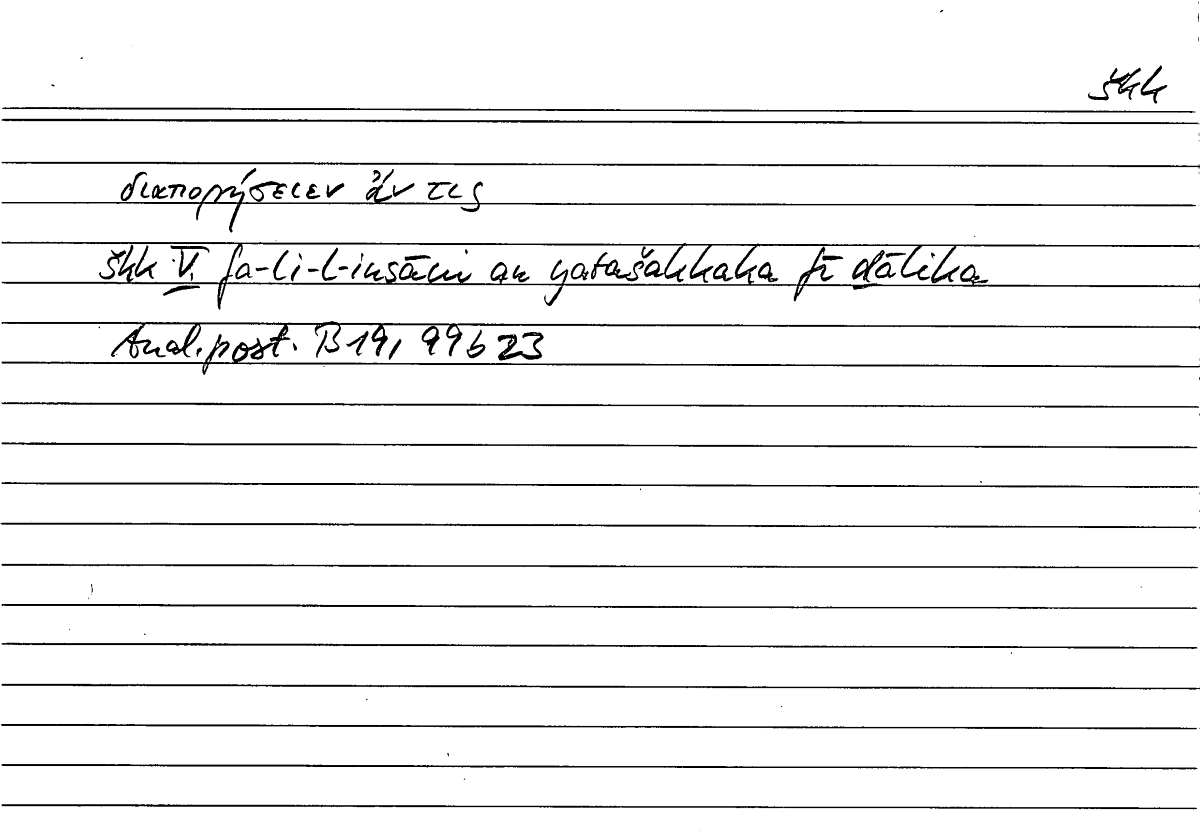 škk
διαπορήσειεν ἄν τις
škk V. fa-li-l-insāni an yatašakkaka fī ḏālika
Anal. post. B 19, 99b23